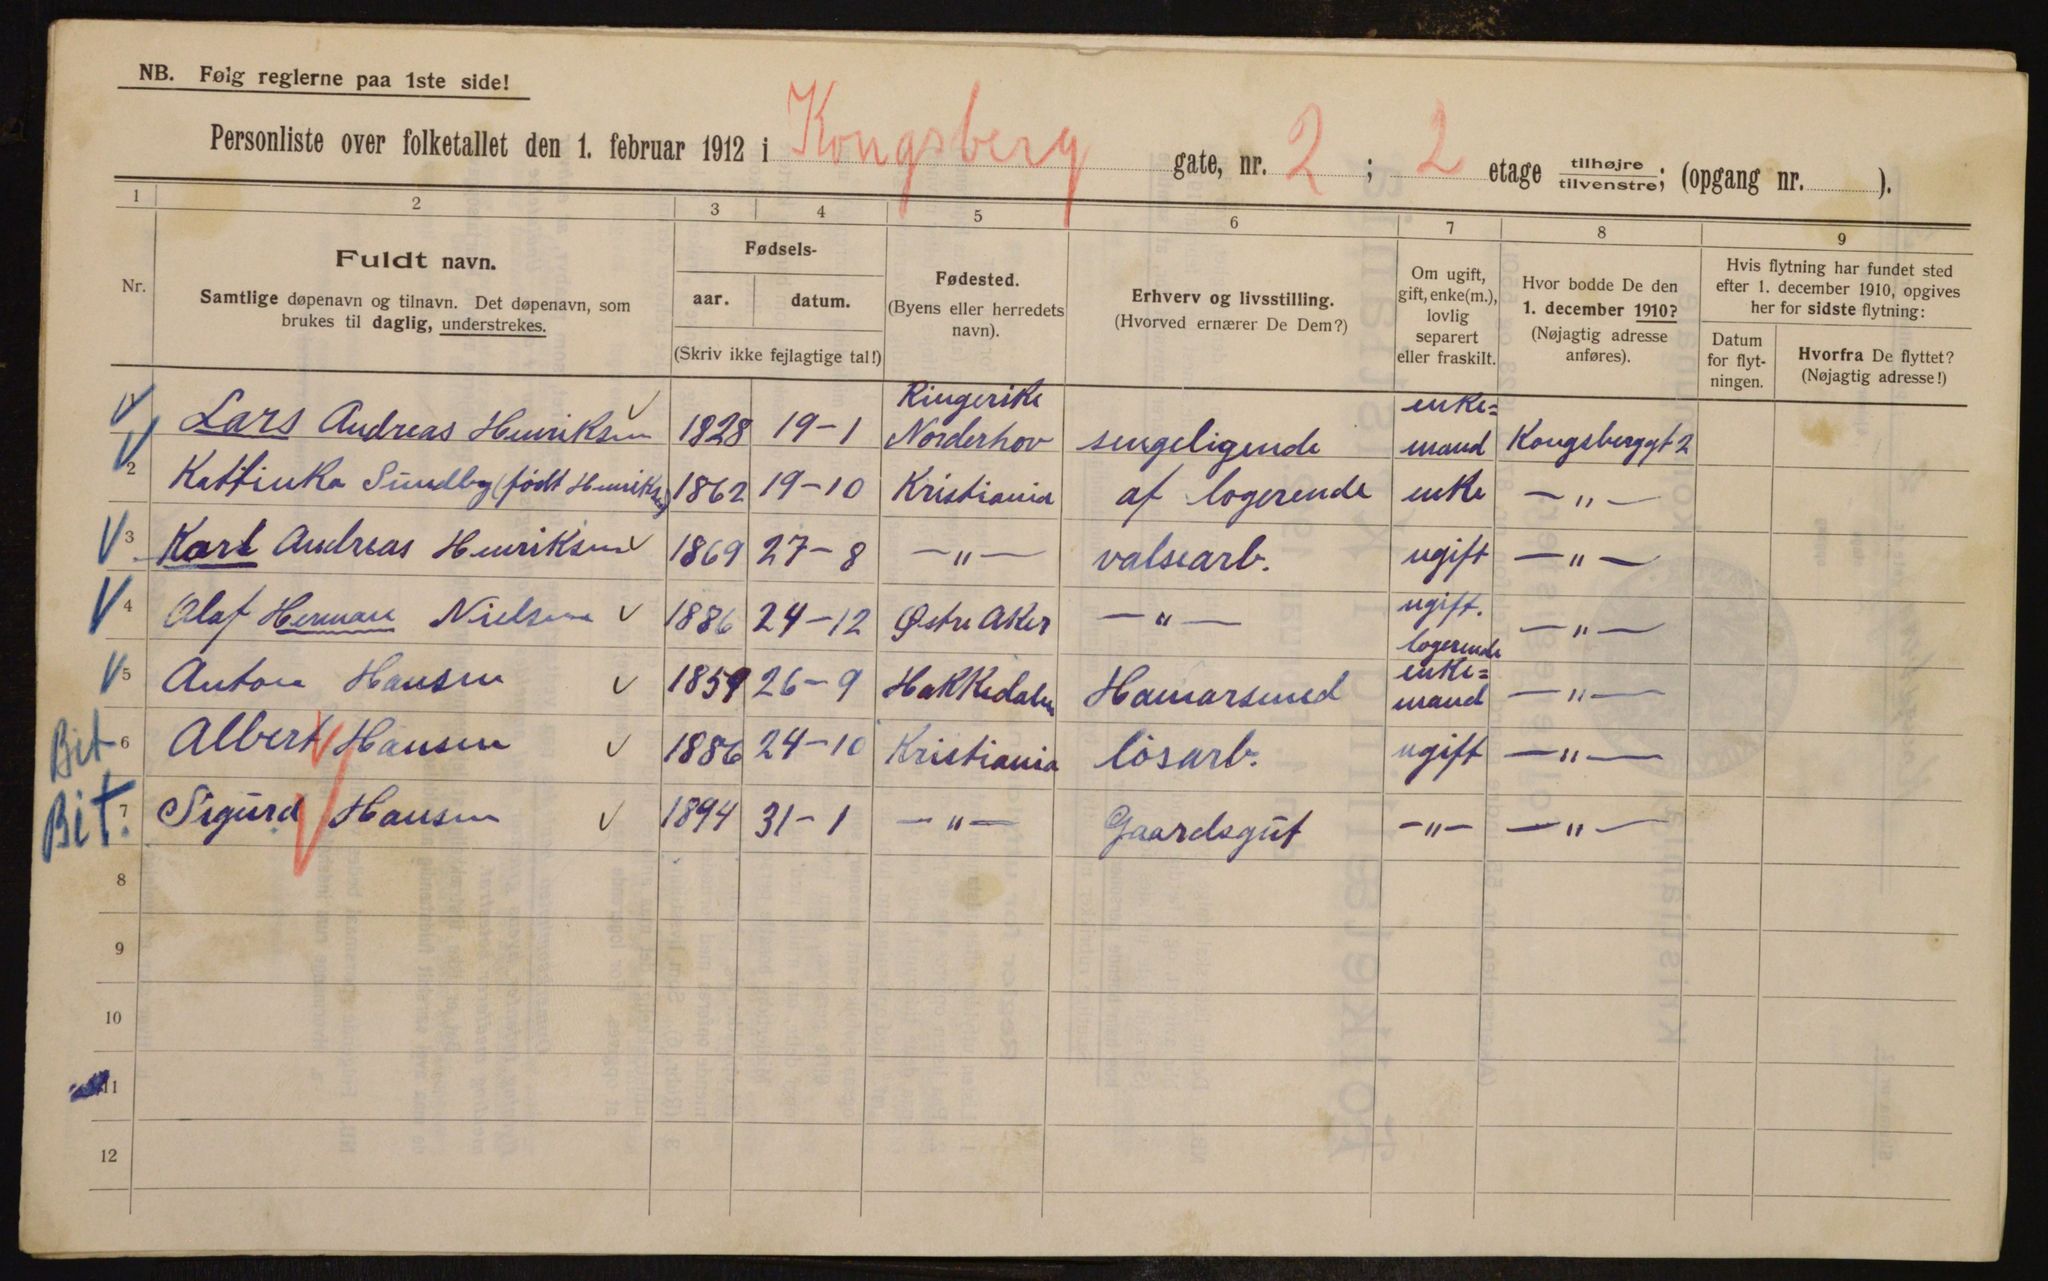 NB. Følg reglerne paa 1ste side!
Personliste over folketallet den 1. februar 1912 i Kongsberg gate, nr. 2 ; 2 etage tilhøjre/tilvenstre; (opgang nr. ).
1 2 3 4 5 6 7 8 9
Nr.
Fuldt navn.
Samtlige døpenavn og tilnavn. Det døpenavn, som
brukes til daglig, understrekes.
Fødsels-
aar. datum.
(Skriv ikke fejlagtige tal!)
Fødested.
(Byens eller herredets
navn).
Erhverv og livsstilling.
(Hvorved ernærer De Dem?)
Om ugift,
gift, enke(m.),
lovlig
separert
eller fraskilt.
Hvor bodde De den
1. december 1910?
(Nøjagtig adresse
anføres).
Hvis flytning har fundet sted
efter 1. december 1910, opgives
her for sidste flytning:
Datum
for flyt-
ningen.
Hvorfra De flyttet?
(Nøjagtig adresse!)
Ringerike enke=
1 Lars Andreas Henriksen 1828 19-1 Norderhov sengeligende mand Kongsberggt 2
2 Kattinka Sundby (født Henriksen) 1862 19-10 Kristiania af logerende enke —"—
3 Karl Andreas Henriksen 1869 27-8 —"— valsearb. ugift —"—
ugift.
4 Olaf Herman Nielsen 1886 24-12 Østre Aker —"— —"—
logerende
enke=
5 Anton Hansen 1859 26-9 Hakkedalen Hamarsmed mand —"—
Bit 6 Albert Hansen 1886 24-10 Kristiania løsarb. ugift —"—
Bit. 7 Sigurd Hansen 1894 31-1 —"— Gaardsgut —"— —"—
8
9
10
11
12